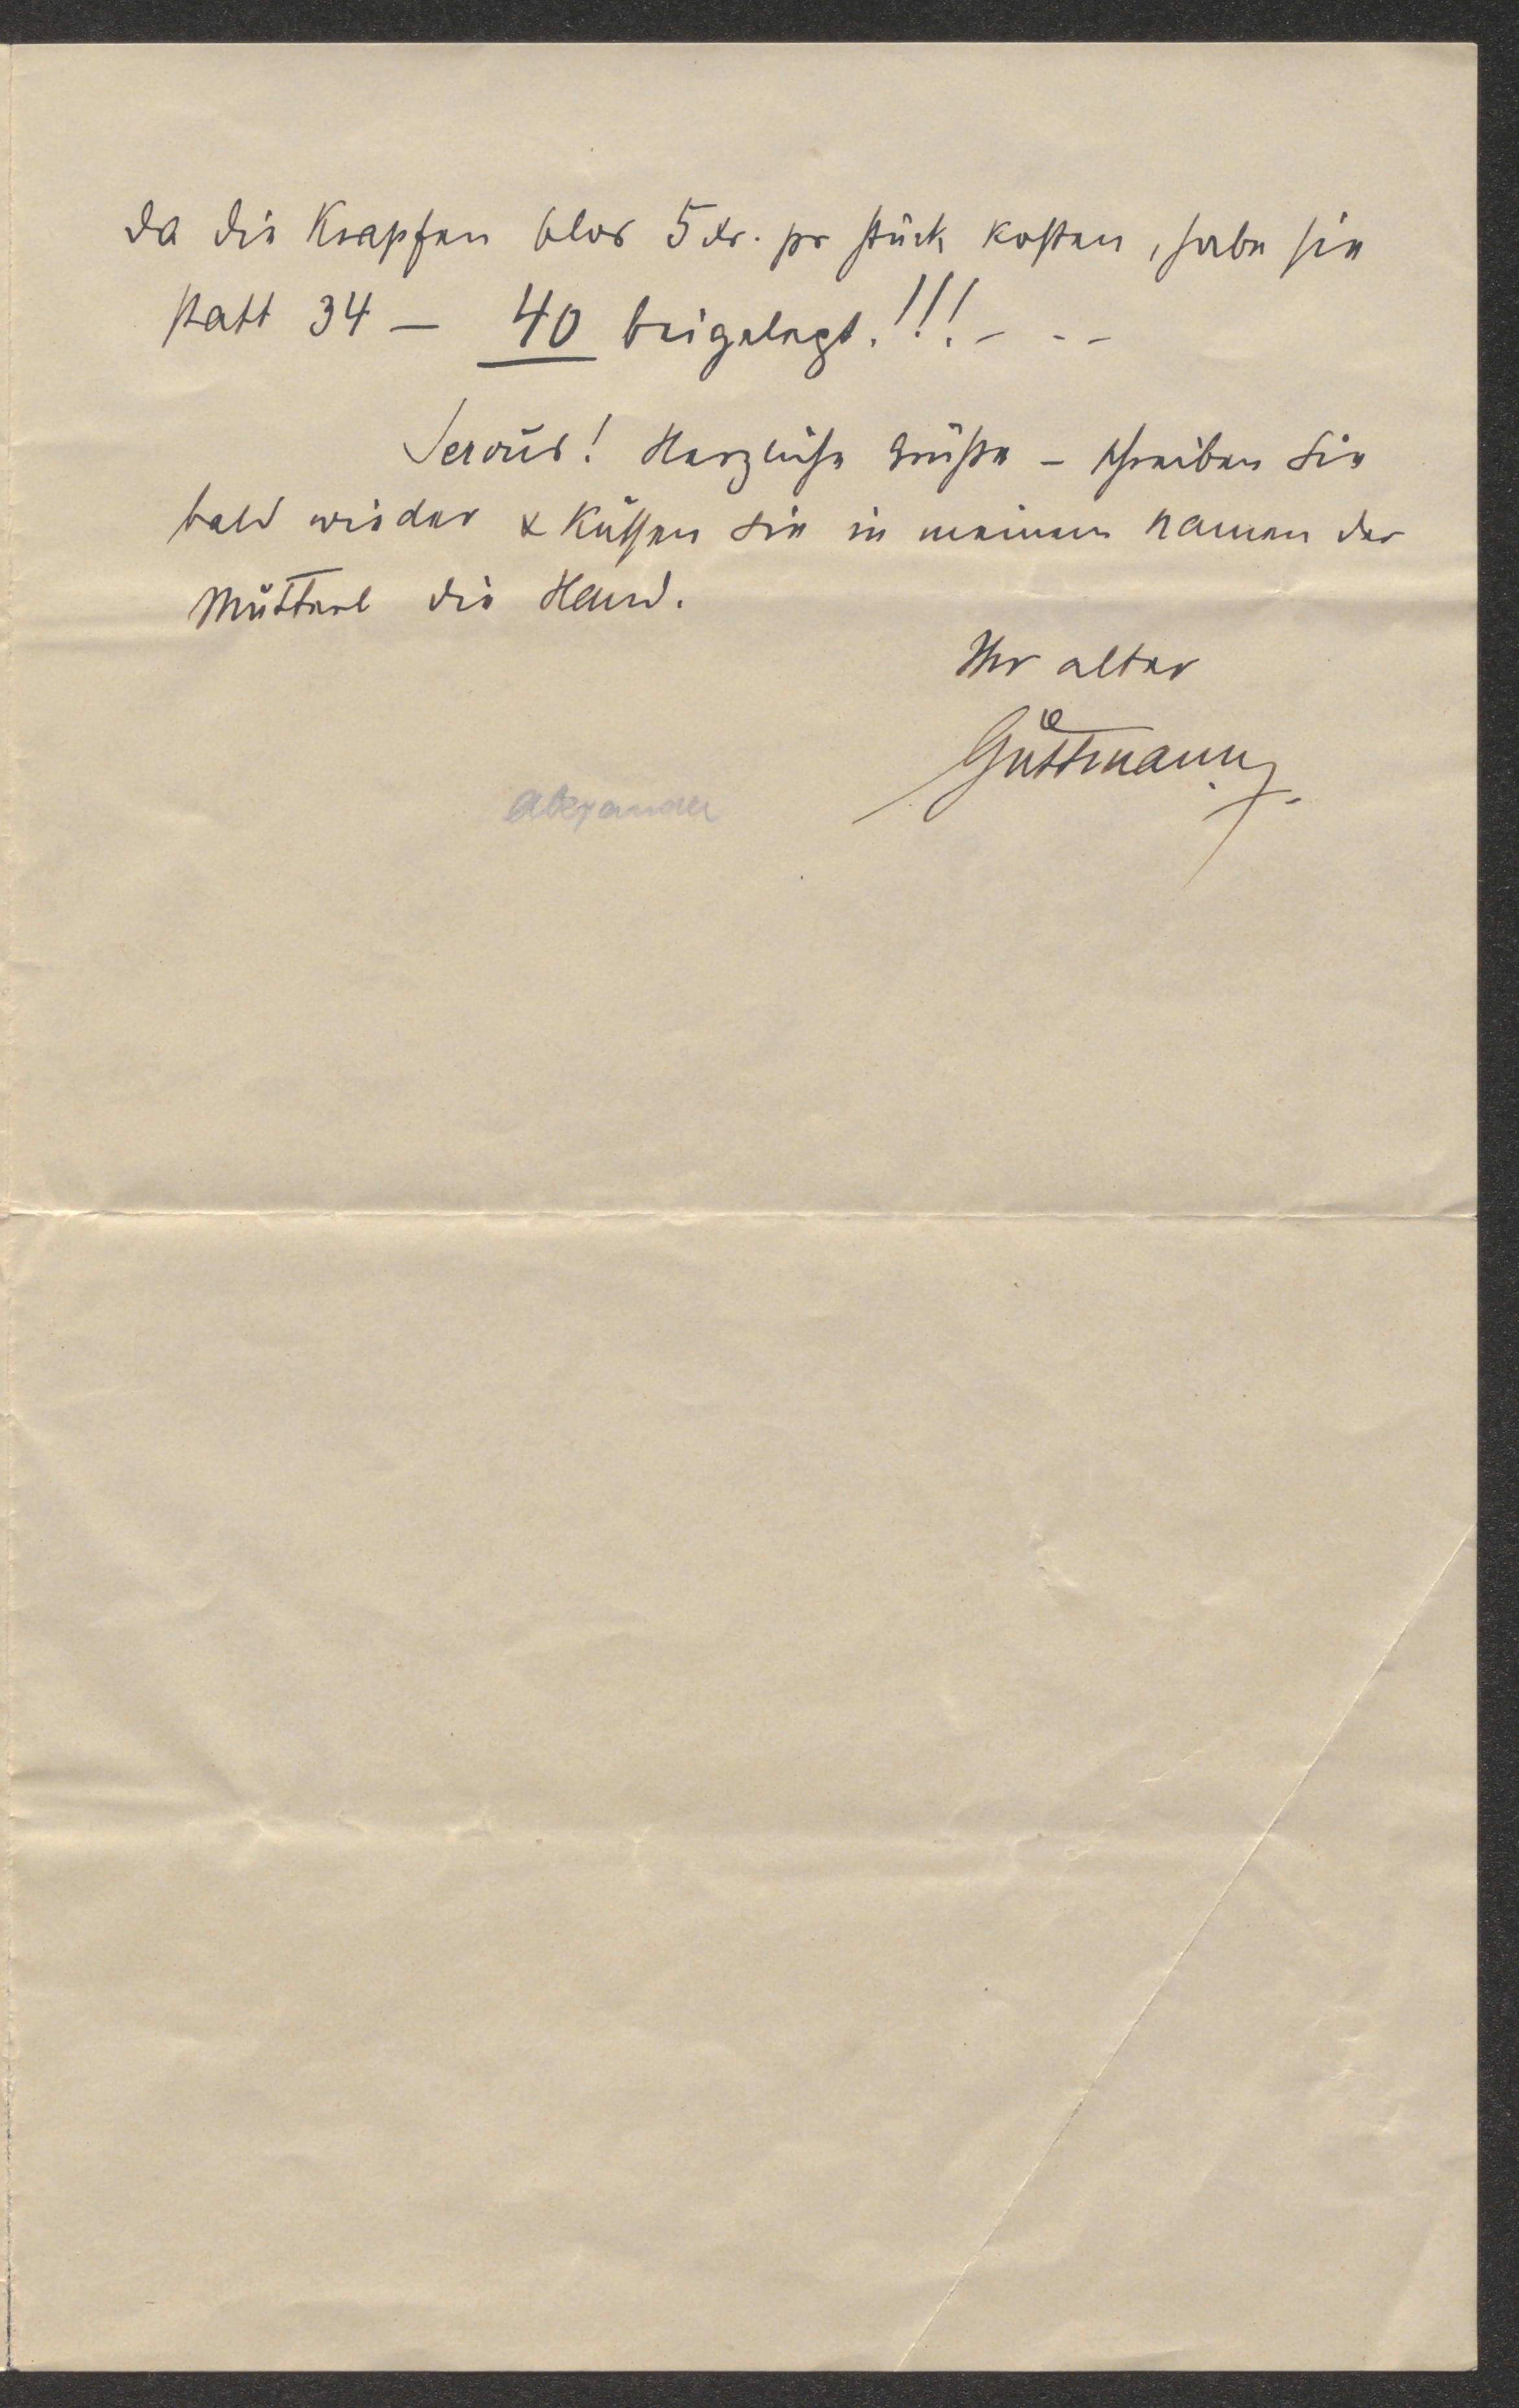 da die Krapfen blos 5 xr. pr Stück kosten, habe sie
statt 34 — 40 beigelegt.!!! – - –
Servus! Herzliche Grüße – schreiben Sie
bald wieder & küssen Sie in meinem Namen der
Mutterl die Hand.
Ihr alter
Guttmann
Alexander